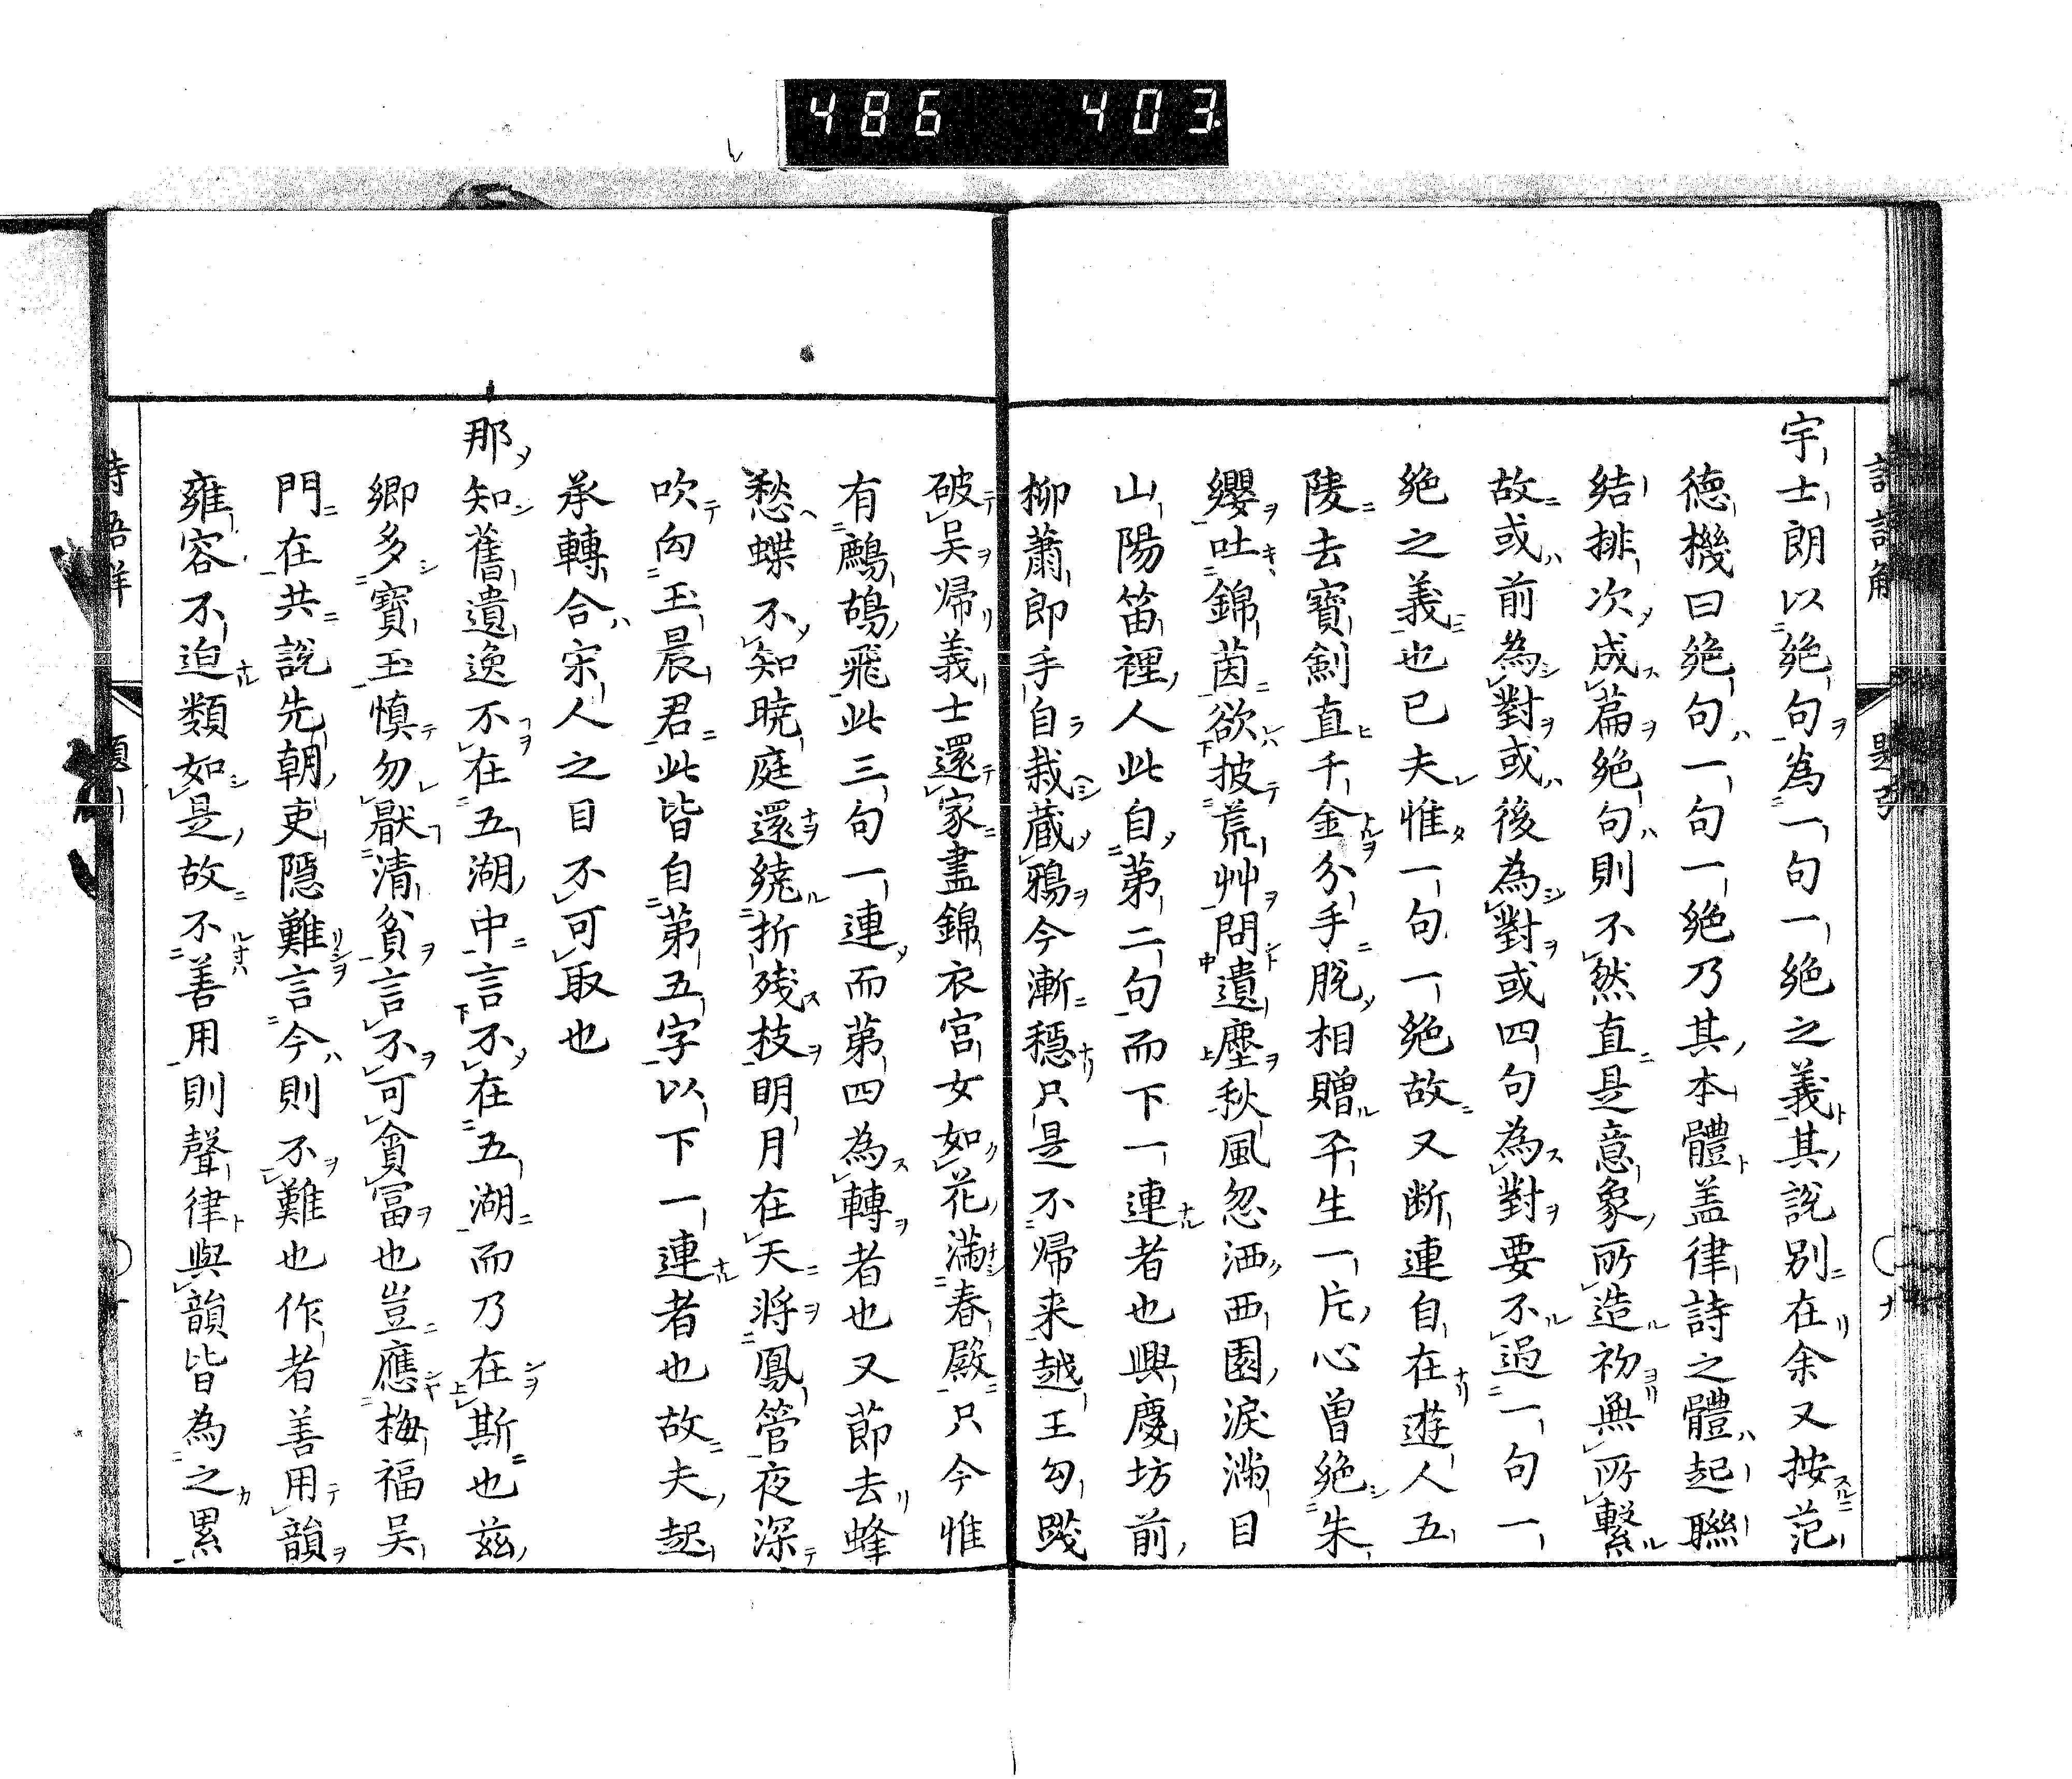 486 403
宇士朗以絶句為一句一絶之義其説別在余又按范
德機曰絶句一句一絶乃其本體盖律詩之體起聯
結排次成篇絶句則不然直是意象所造初無所繋
故或前為對或後為對或四句為對要不過一句一
絶之義也已夫惟一句一絶故又断連自在遊人五
陵去寶劍直千金分手脱相贈平生一片心曽絶朱
纓吐錦茵欲披荒艸問遺塵秋風忽洒西園淚滿目
山陽笛裡人此自第二句而下一連者也興慶坊前
柳蕭郎手自栽蔵鴉今漸穩只是不帰来越王勾踐
破吴帰義士還家盡錦衣宮女如花滿春殿只今惟
有鷓鴣飛此三句一連而第四為轉者也又莭去蜂
愁蝶不知暁庭還繞折残枝明月在天将鳳管夜深
吹向玉晨君此皆自第五字以下一連者也故夫起
承轉合宋人之目不可取也
那知舊遺逸不在五湖中言不在五湖而乃在斯也茲
卿多寶玉慎勿厭清貧言不可貪冨也豈應梅福吴
門在共説先朝吏隠難言今則不難也作者善用韻
雍容不迫類如是故不善用則聲律與韻皆為之累